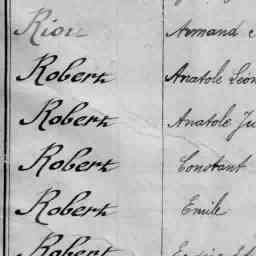 Riou Armand
Robert Anatole Léon
Robert Anatole Ju
Robert Constant
Robert Emile
Robert